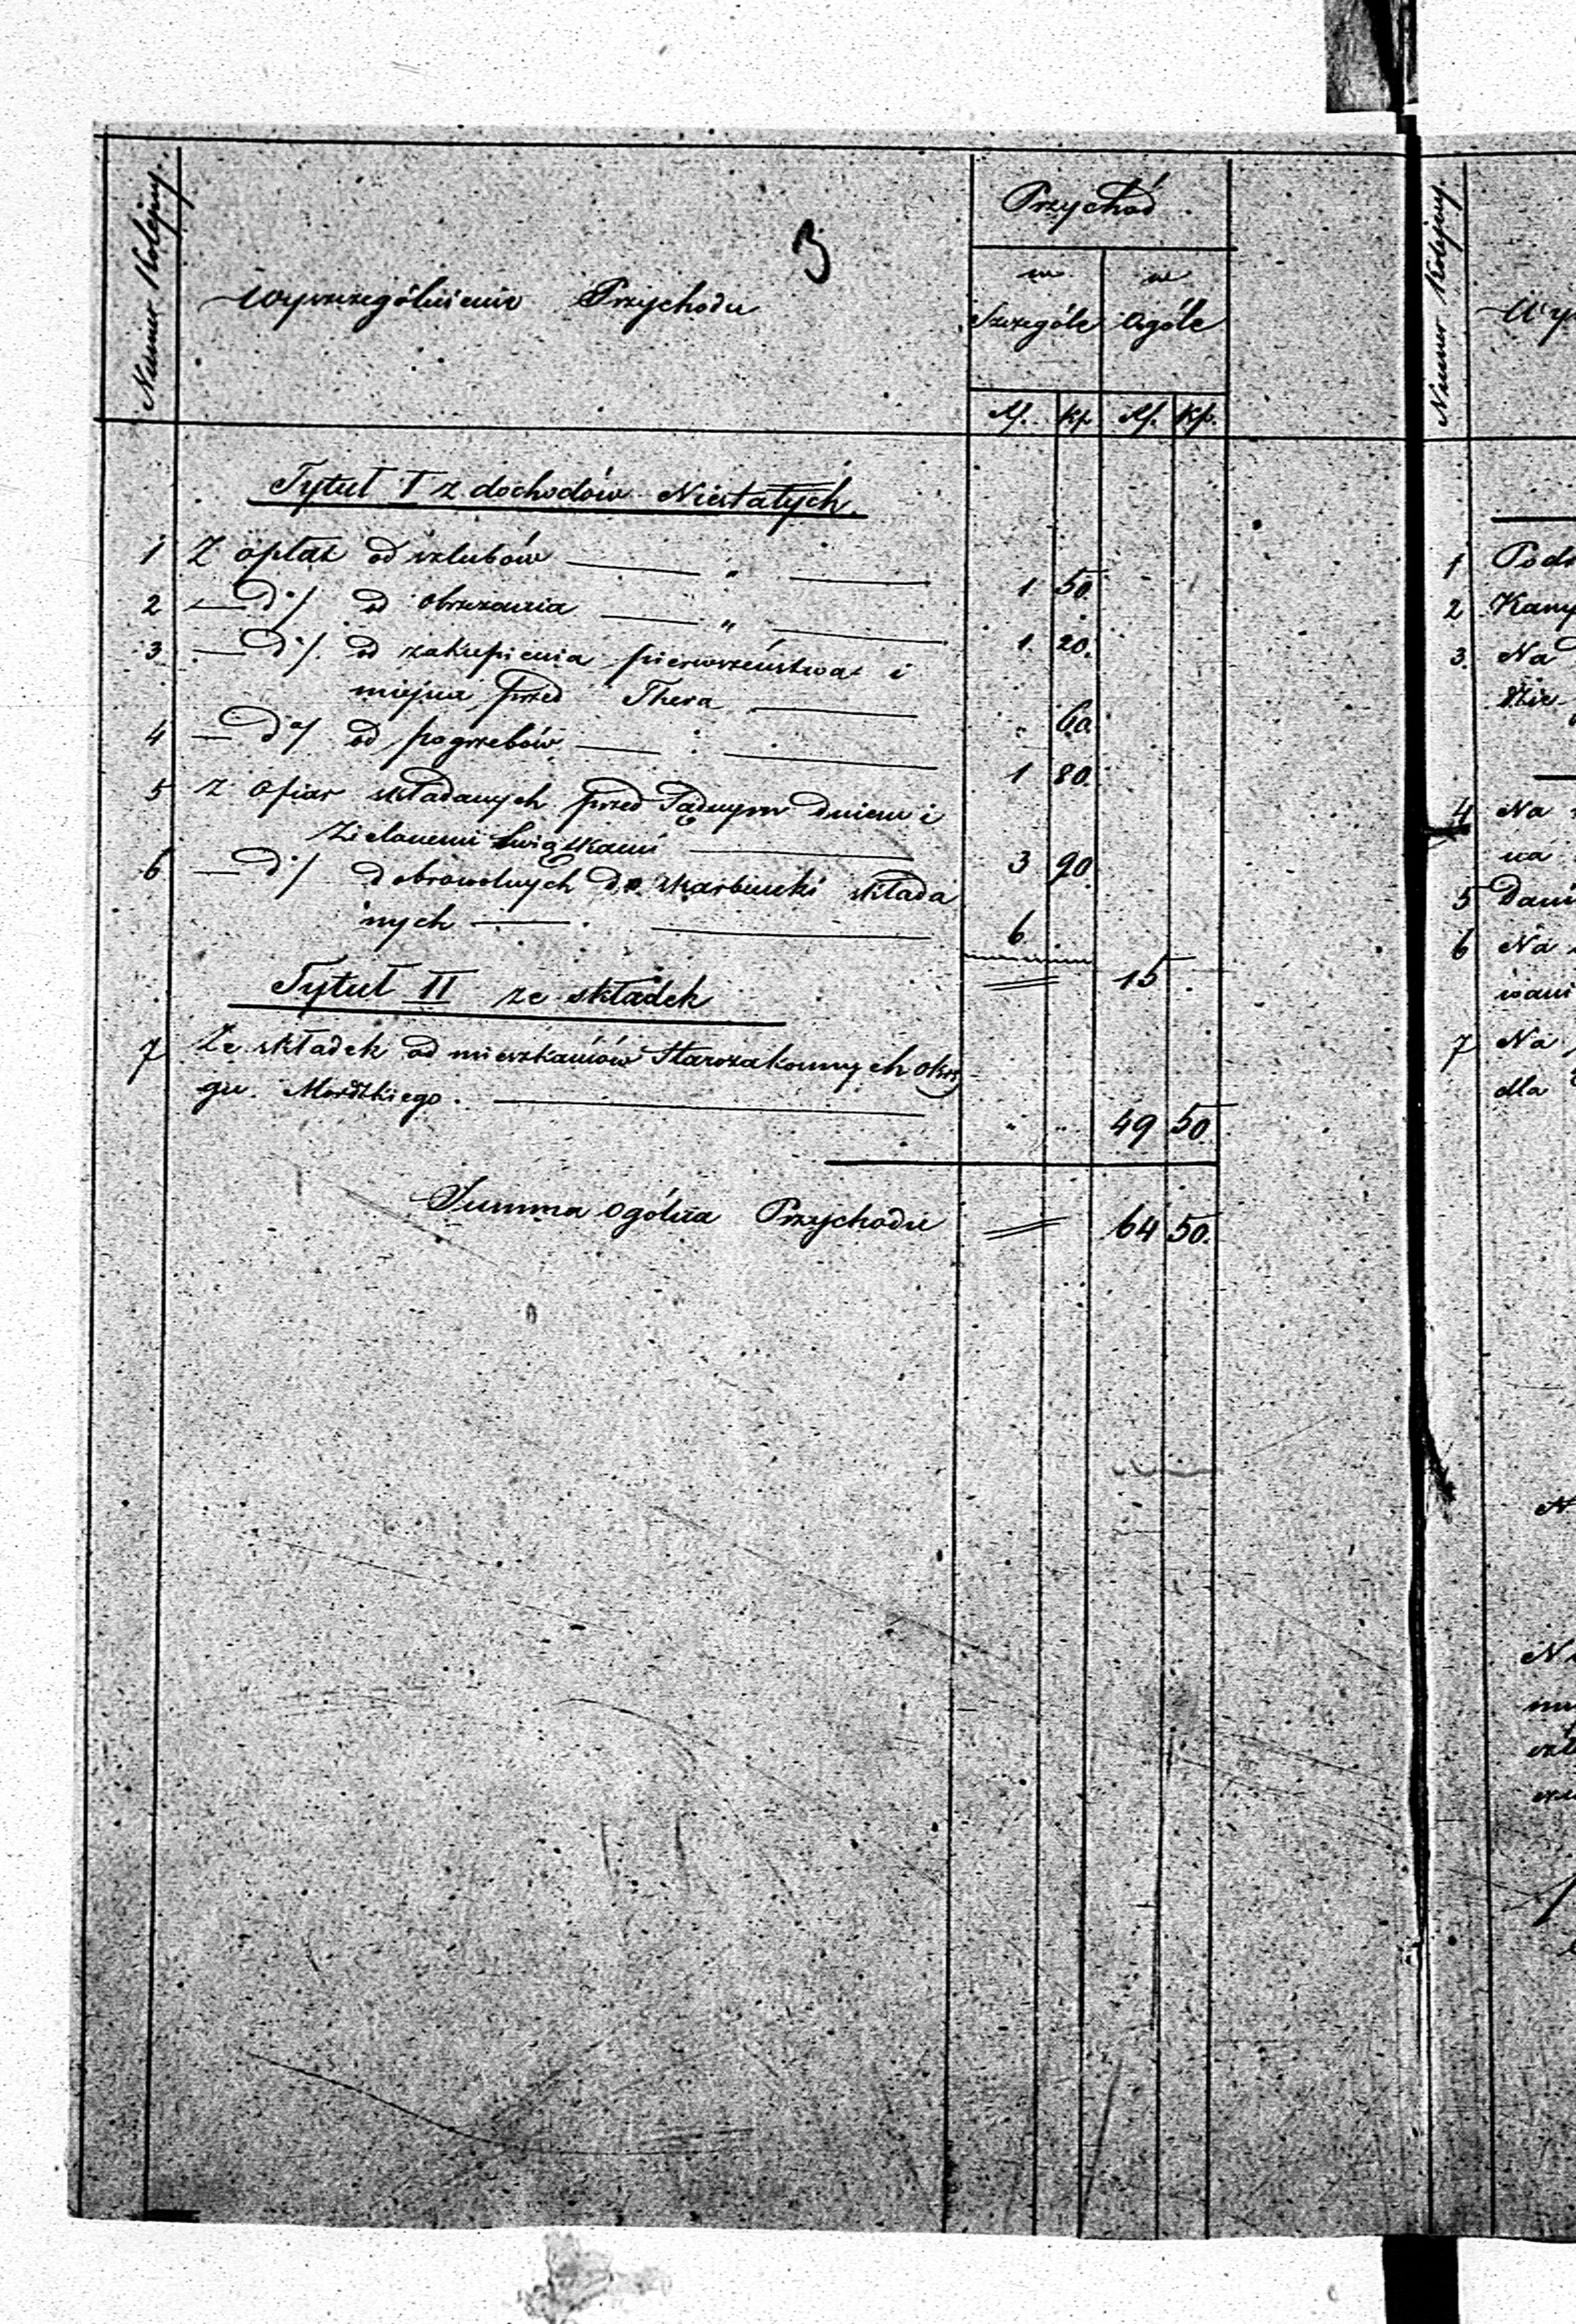 3
Numer Kolejny.
Wyszczególnienie Przychodu
Przychód
w Szczególe
w Ogóle
Rs. Kp. Rs. Kp.
Tytuł I z dochodów Niestałych
1 Z opłat od szlubów — " — 1 50.
2 — do/ od obrzezania — " — 1. 20.
3 — do/. od zakupienia pierwszeństwa i
miejsca przed Thora — " 60.
4 — do/ od pogrzebów — 1 80.
5 Z ofiar składanych przed Sądnym Dniem i
Zielonemi Świątkami — 3 90.
6 — do/ dobrowolnych do skarbonki składa
nych — 6 .
15 .
Tytuł II ze składek
7 Ze składek od mieszkańców Starozakonnych Okrę
gu Mordzkiego. — " " 49 50.
Summa ogólna Przychodu 64 50.
Numer Kolejny.
1
2
3. Na
4 Na
na
5
6 Na
7 Na
dla